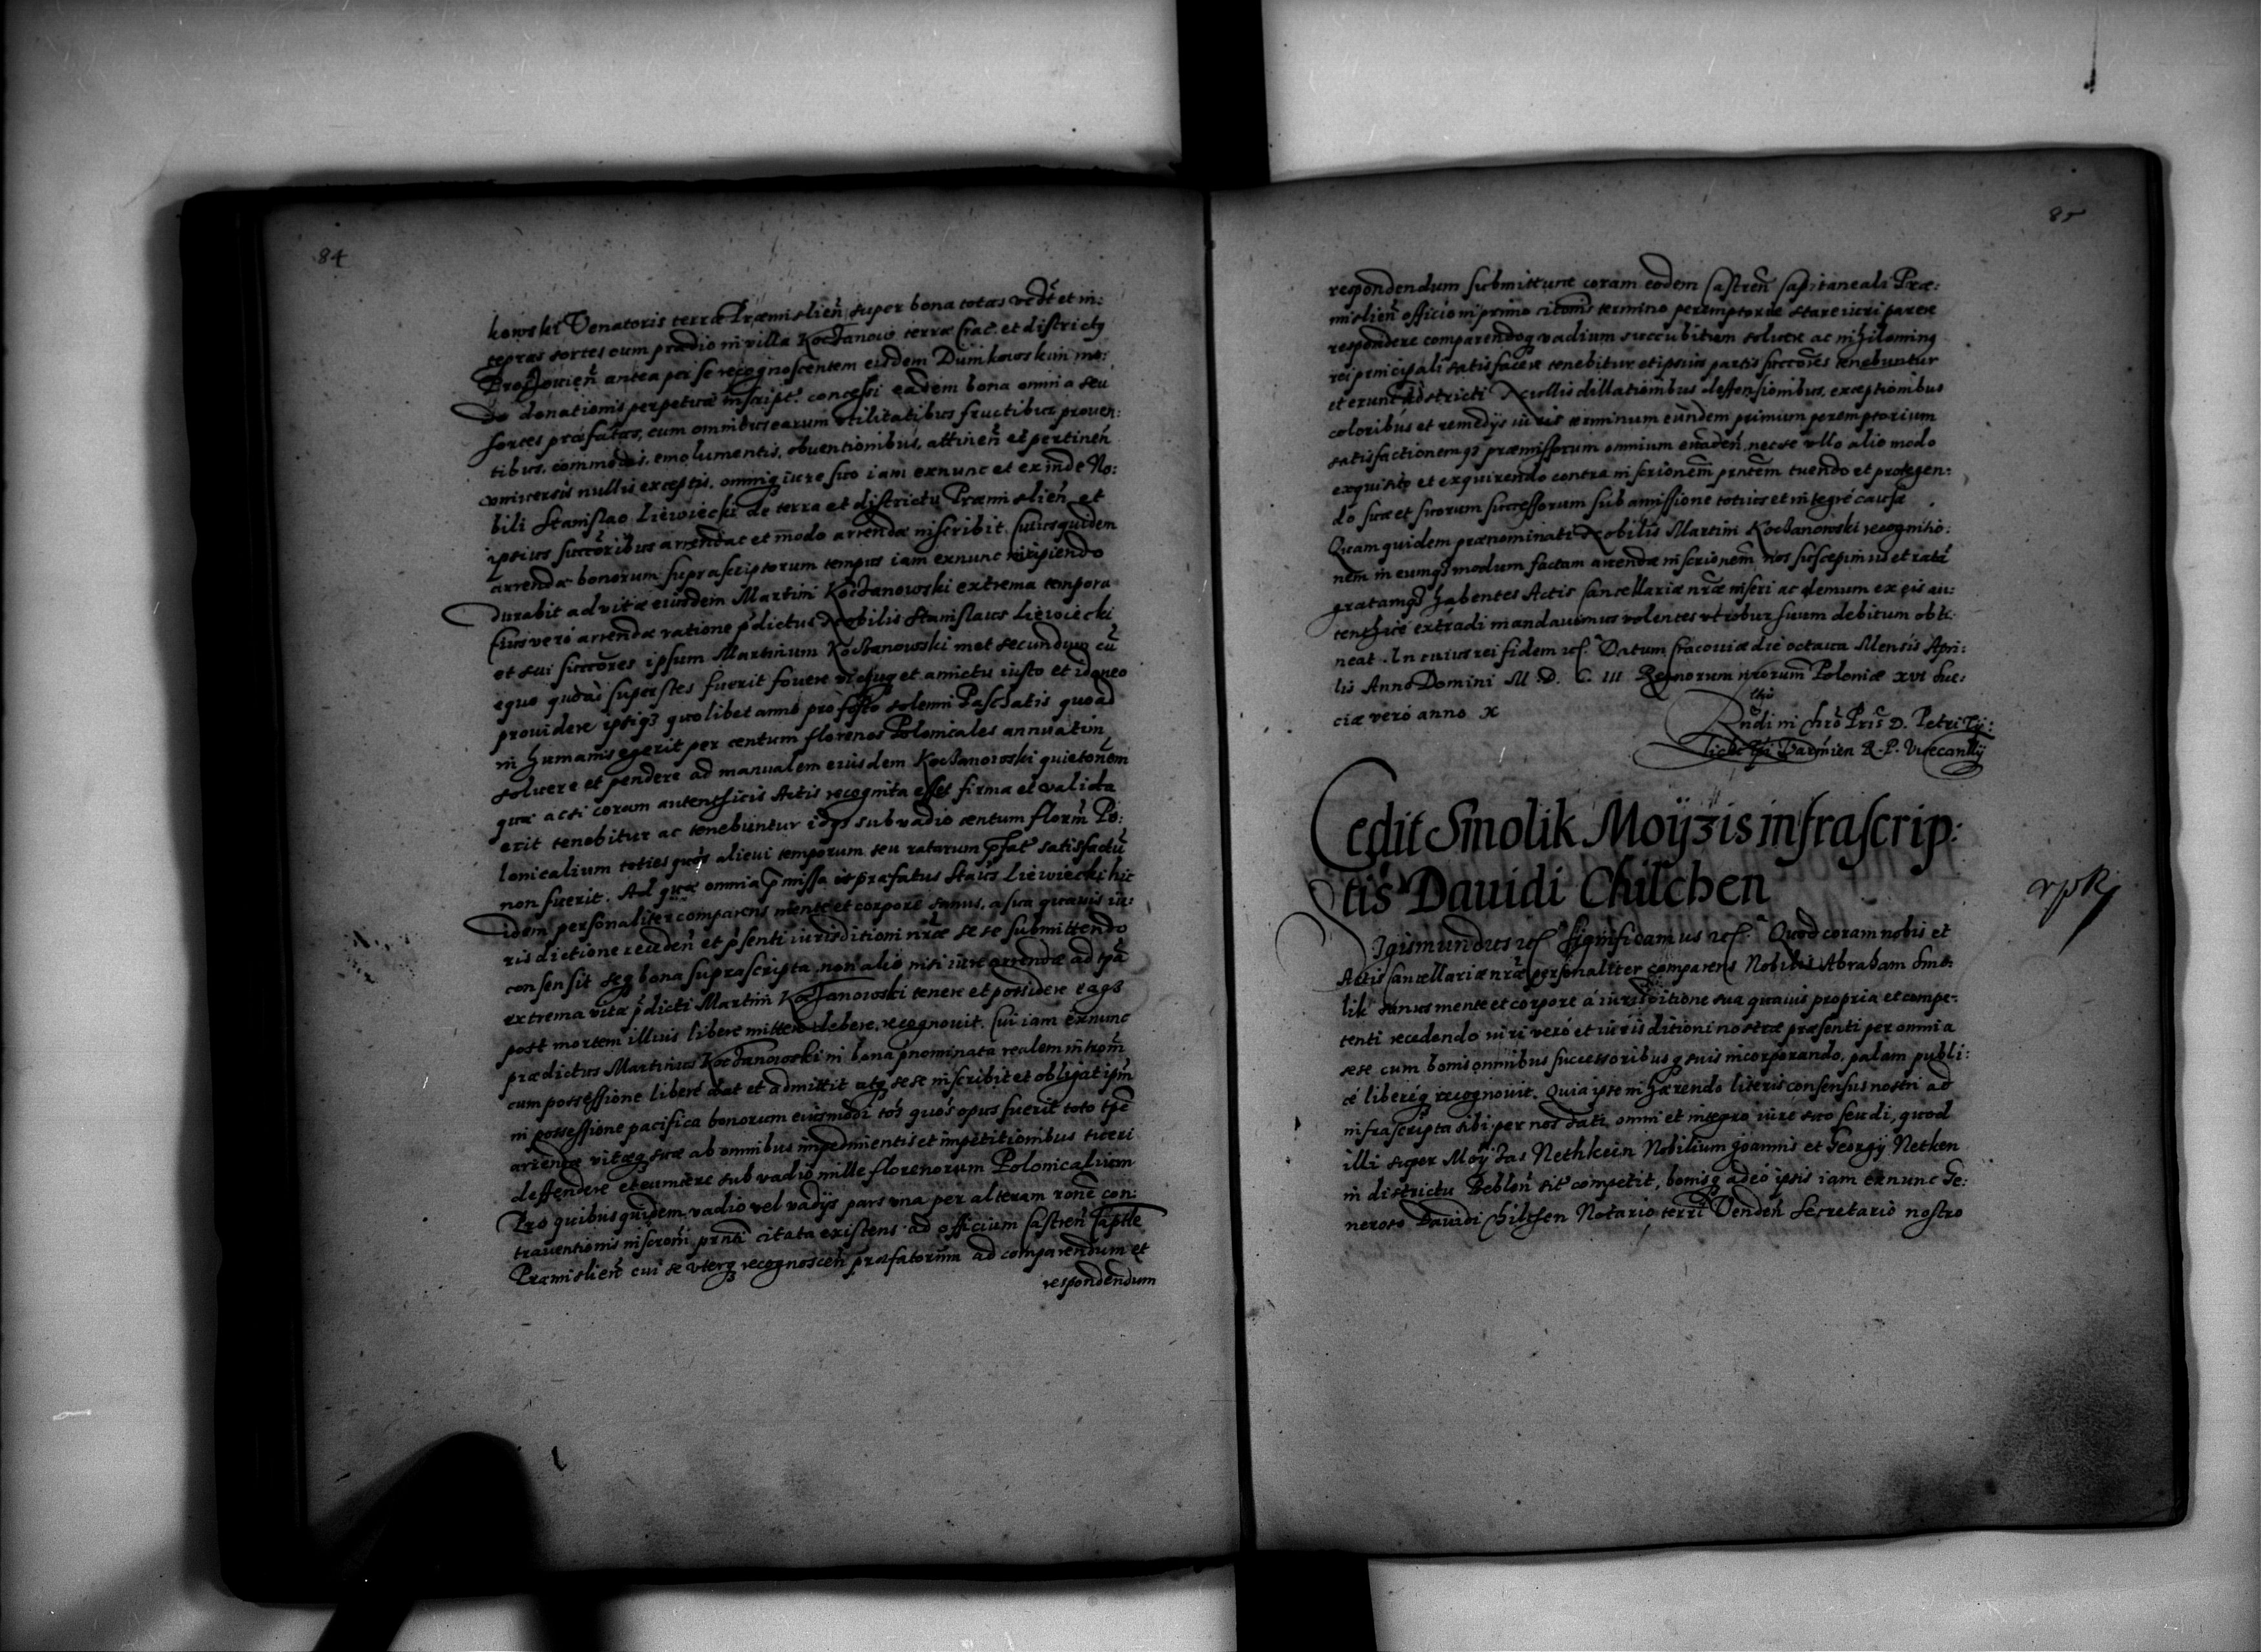 84
kowski Venatoris terræ Præmislieñ super bona totas vedt et in:
tegras sortes cum prædio in villa Kochanow terræ Crac. et districtq
Proszouieñ antea per se recognoscentem eisdem Dunikowskim mo:
do donationis perpetuæ inscript. concessi eadem bona omnia seu
sortes præfatas, cum omnibus earum vtilitatibus fructibus prouen:
tibus, commodis, emolumentis, obuentionibus, attineñ et pertineñ
vniuersis nullis exceptis, omniq iure suo iam exnunc et exinde No:
bili Stanislao Liewiecki de terra et districtu Præmislieñ et
ipsius succoribus arrendat et modo arrendæ inscribit. Cuiusquidem
arrendæ bonorum suprascriptorum tempus iam exnunc incipiendo
durabit ad vitæ eiusdem Martini Kochanowski extrema tempora
Cuius veró arrendæ ratione pdictus Nobilis Stanislaus Liewiecki
et sui succores ipsum Martinum Kochanowski met secundum cũ
equo quoad superstes fuerit fouere victuq et amictu iusto et idoneo
prouidere ipsiq3 quolibet anno pro festo solenni Paschatis quoad
in humanis egerit per centum florenos Polonicales annuatim
soluere et pendere ad manualem eiusdem Kochanowski quietonem
quæ acsi coram autenthicis Actis recognita esset firma et valida
erit tenebitur ac tenebuntur idq3 sub vadio centum florm Po:
lonicalium toties quos alicui temporum seu ratarum pfat satisfactũ
non fuerit. Ad quæ omnia pmissa is præfatus Staus Liewiecki hic
idem personaliter comparens mente et corpore sanus, a sua quauis iu:
ris dictione recedeñ et psenti iurisditioni nræ se se submittendo
consensit seq bona suprascripta non alio nisi iure arrendæ ad tpã
extrema vitæ pdicti Martini Kochanowski tenere et possidere eaq3
post mortem illius libere mittere debere, recognouit. Cui iam exnunc
prædictus Martinus Kochanowski in bona pnominata realem introm
cum possessione liberé dat et admittit atq sese inscribit et obligat ipm
in possessione pacifica bonorum eiusmodi tos quos opus fuerit toto tpe
arrendæ vitæq suæ ab omnibus impedimentis et impetitionibus tueri
deffendere et eumcere sub vadio mille florenorum Polonicalium
Pro quibusquidem vadio vel vadijs pars vna per alteram rone con:
trauentionis inscroni prnti citata existens ad officium Castreñ Captle
Præmislieñ cui se vterq recognosceñ præfatorum ad comparendum et
respondendum
85
respondendum submittunt coram eodem Castreñ Capitaneali Præ:
mislieñ officio in primo citonis termino peremptorie stare iuri parere
respondere comparendoq vadium succubitum soluere ac nihilominq
rei principali satisfacere tenebitur et ipsius partis succores tenebuntur
et erunt adstricti Nullis dillationibus deffensionibus, exceptionibus
coloribus et remedijs iuris terminum eundem primum peremptorium
satisfactionemq3 præmissorum omnium euadeñ. nec se vllo alio modo
exquisito et exquirendo contra inscrionem prntem tuendo et protegen:
do suæ et suorum successorum sub amissione totius et integré causæ.
Quamquidem prænominati Nobilis Martini Kochanowski recognitio:
nem in eumq3 modum factam arrendæ inscrionem nos suscepimus et ratã
gratamq3 habentes Actis Cancellariæ nræ inseri ac demum ex eis au:
tenthicé extradi mandauimus volentes vt robur suum debitum obti:
neat. In cuius rei fidem etc. Datum Cracouiæ die octaua Mensis Apri:
lis Anno Domini M. D. C. III Regnorum nrorum Poloniæ xvi Sue:
ciæ veró anno x
Rndi in Chro Pris D. Petri Ty:
licki Epi Varmien R. P. Vicecanllrij
Cedit Smolik Moÿzis infrascrip:
tis Dauidi Chilchen
rpk
Sigismundus etc. Significamus etc. Quod coram nobis et
Actis Cancellariæ nræ personaliter comparens Nobilis Abraham Smo:
lik sanus mente et corpore á iurisditione sua quauis propria et compe:
tenti recedendo iuri veró et iurisditioni nostræ præsenti per omnia
sese cum bonis omnibus successoribusq suis incorporando, palam publi:
cé liberéq recognouit. Quia ipse inhærendo literis consensus nostri ad
infrascripta sibi per nos dati, omni et integro iure suo feudi, quod
illi super Moÿzas Nethkein Nobilium Joannis et Georgij Netken
in districtu Beblen sit competit, bonisq adeó ipsis iam exnunc Ge:
neroso Dauidi Chilchen Notario terri Vendeñ Secretario nostro